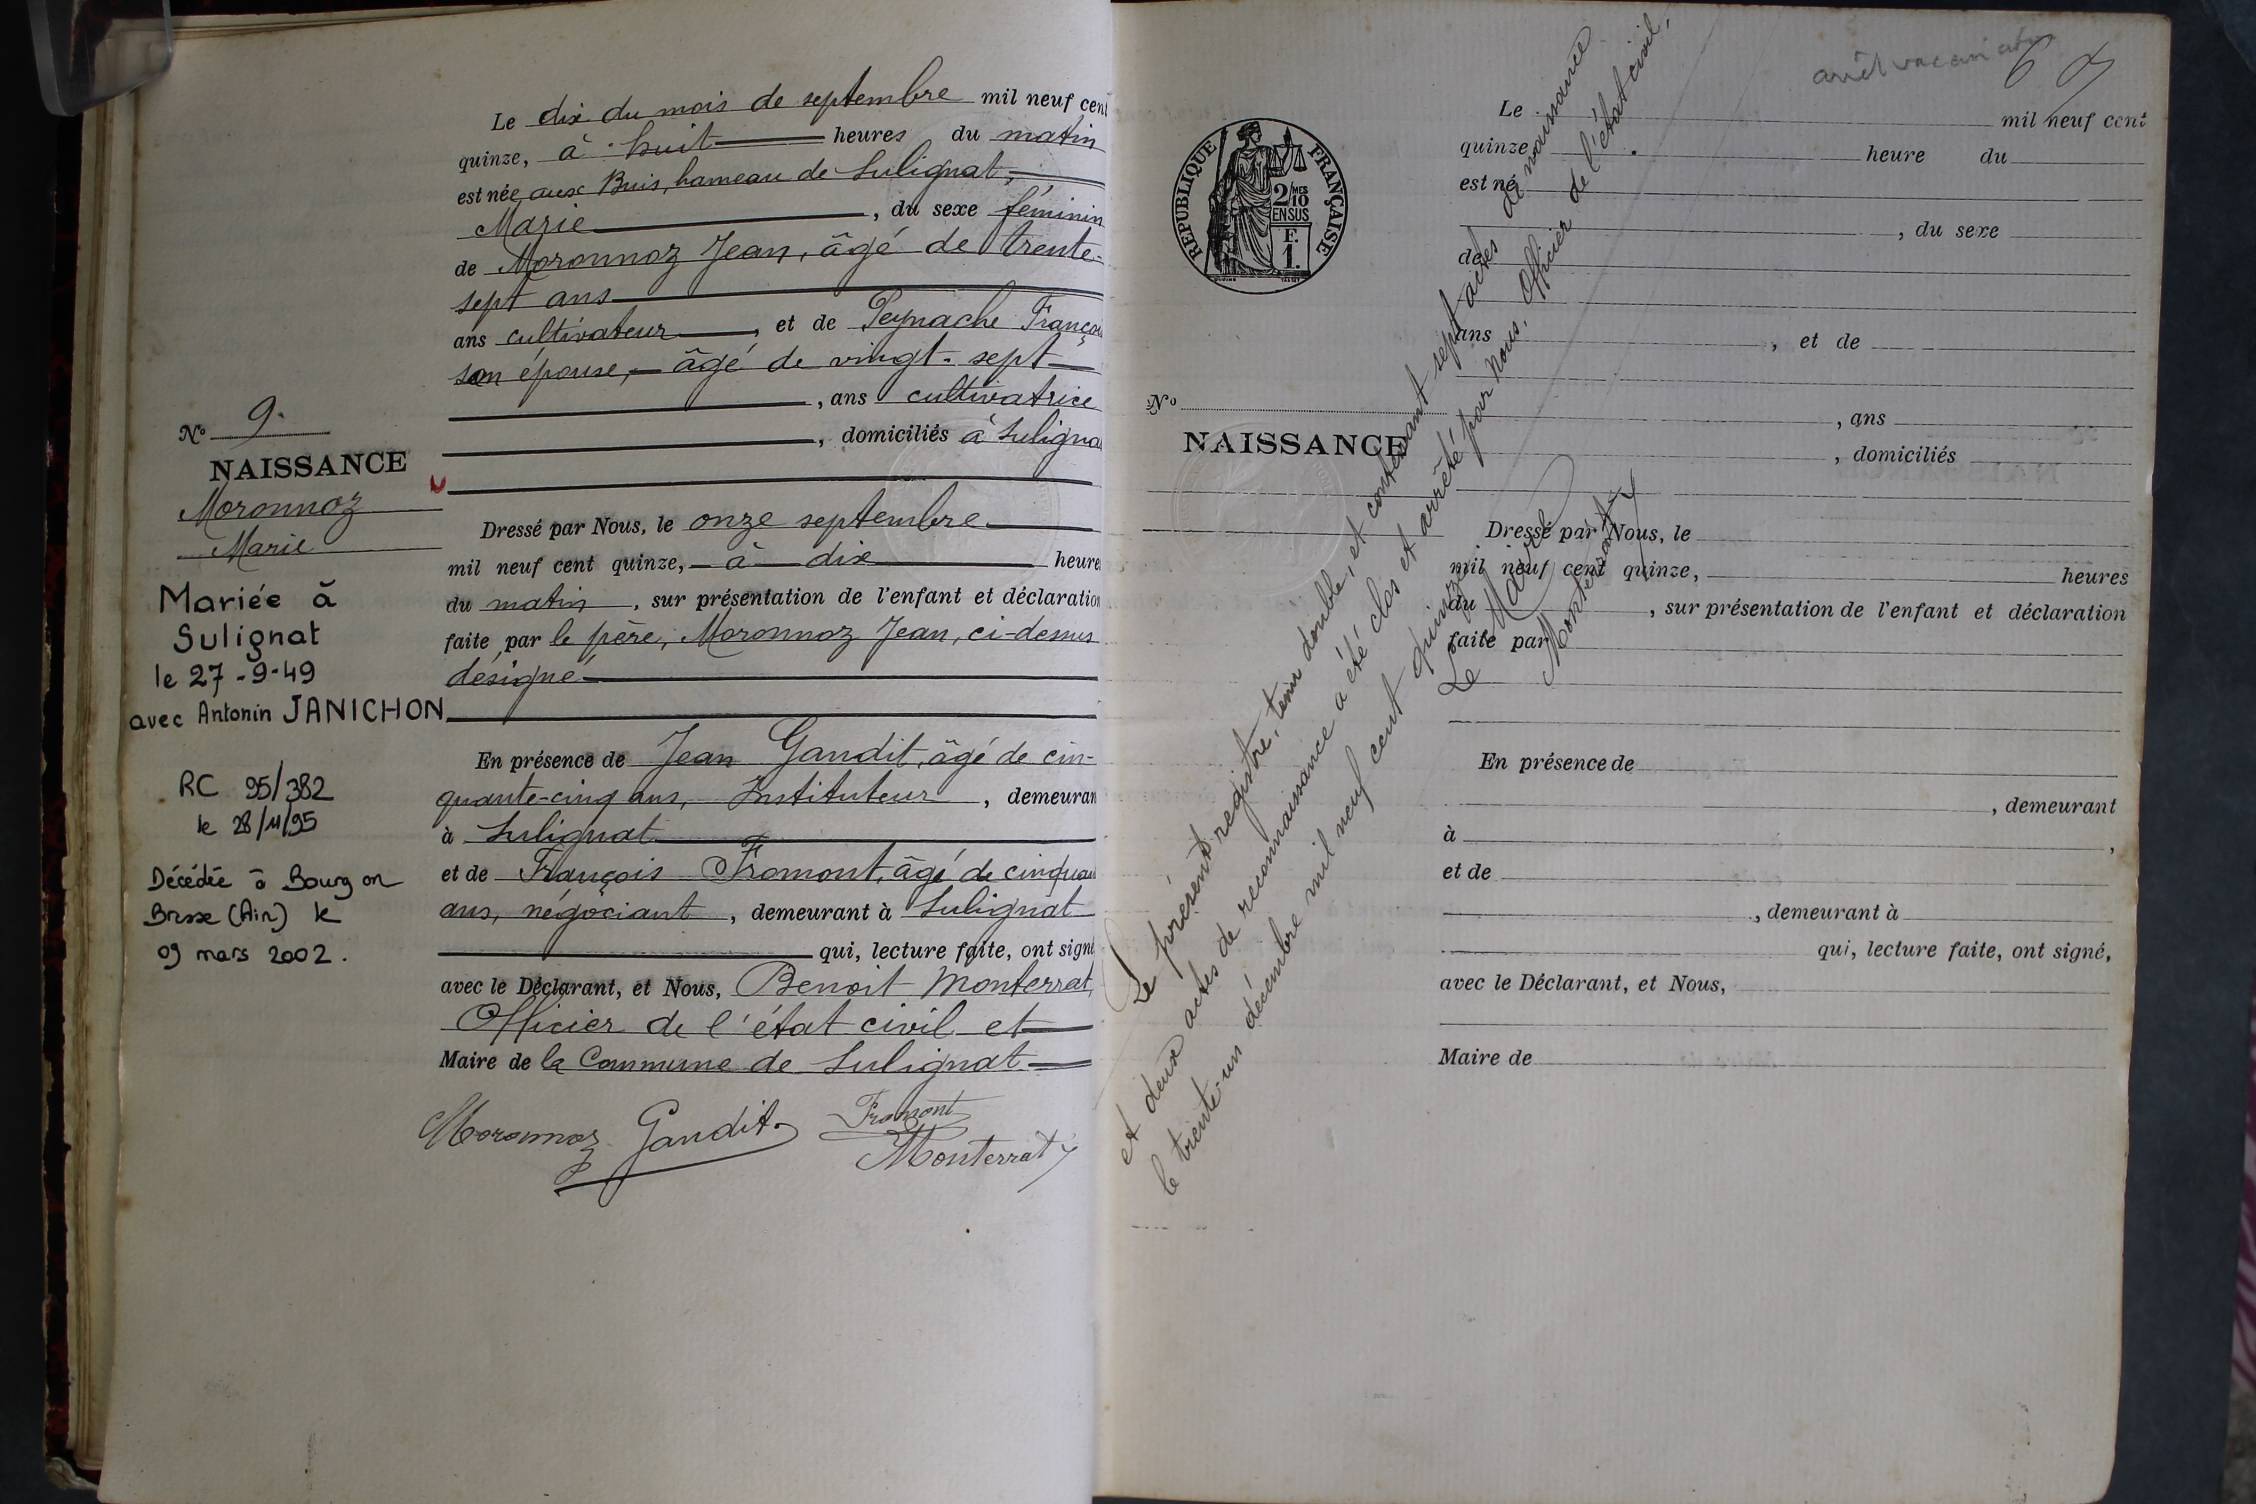 Le dix du mois de septembre mil neuf cent
quinze, à huit heures du matin
est née aux Buis, hameau de Sulignat,
Marie, du sexe féminin
de Moronnoz Jean, âgé de trente-
sept ans
ans cultivateur, et de Peynache Franço
son épouse, âgé de vingt-sept
, ans cultivatrice
, domiciliés à Suligna
No 9.
NAISSANCE
Moronnoz
Marie
Mariée à
Sulignat
le 27-9-49
avec Antonin JANICHON
RC 95/382
le 28/11/95
Décédée à Bourg en
Bresse (Ain) le
09 mars 2002.
Dressé par Nous, le onze septembre
mil neuf cent quinze, à dix heures
du matin, sur présentation de l'enfant et déclaration
faite par le père, Moronnoz Jean, ci-dessus
désigné
En présence de Jean Gandit, âgé de cin-
quante-cinq ans, Instituteur, demeuran
à Sulignat
et de François Fromont, âgé de cinquan
ans, négociant, demeurant à Sulignat
qui, lecture faite, ont signé
avec le Déclarant, et Nous, Benoit Monterrat,
Officier de l'état civil et
Maire de la Commune de Sulignat
Moronnoz Gandit Fromont
Monterrat
6
RÉPUBLIQUE FRANÇAISE
2/10MES
EN SUS
F.
1.
Le mil neuf cent
quinze heure du
est né
, du sexe
de
ans , et de
, ans
, domiciliés
No
NAISSANCE
Dressé par Nous, le
mil neuf cent quinze, heures
du , sur présentation de l'enfant et déclaration
faite par
En présence de
, demeurant
à ,
et de
, demeurant à
qui, lecture faite, ont signé,
avec le Déclarant, et Nous,
Maire de
Le présent registre, tenu double, et contenant sept actes de naissance
et deux actes de reconnaissance a été clos et arrêté par Nous, Officier de l'état civil,
le trente-un décembre mil neuf cent quinze
Le Maire
Monterrat